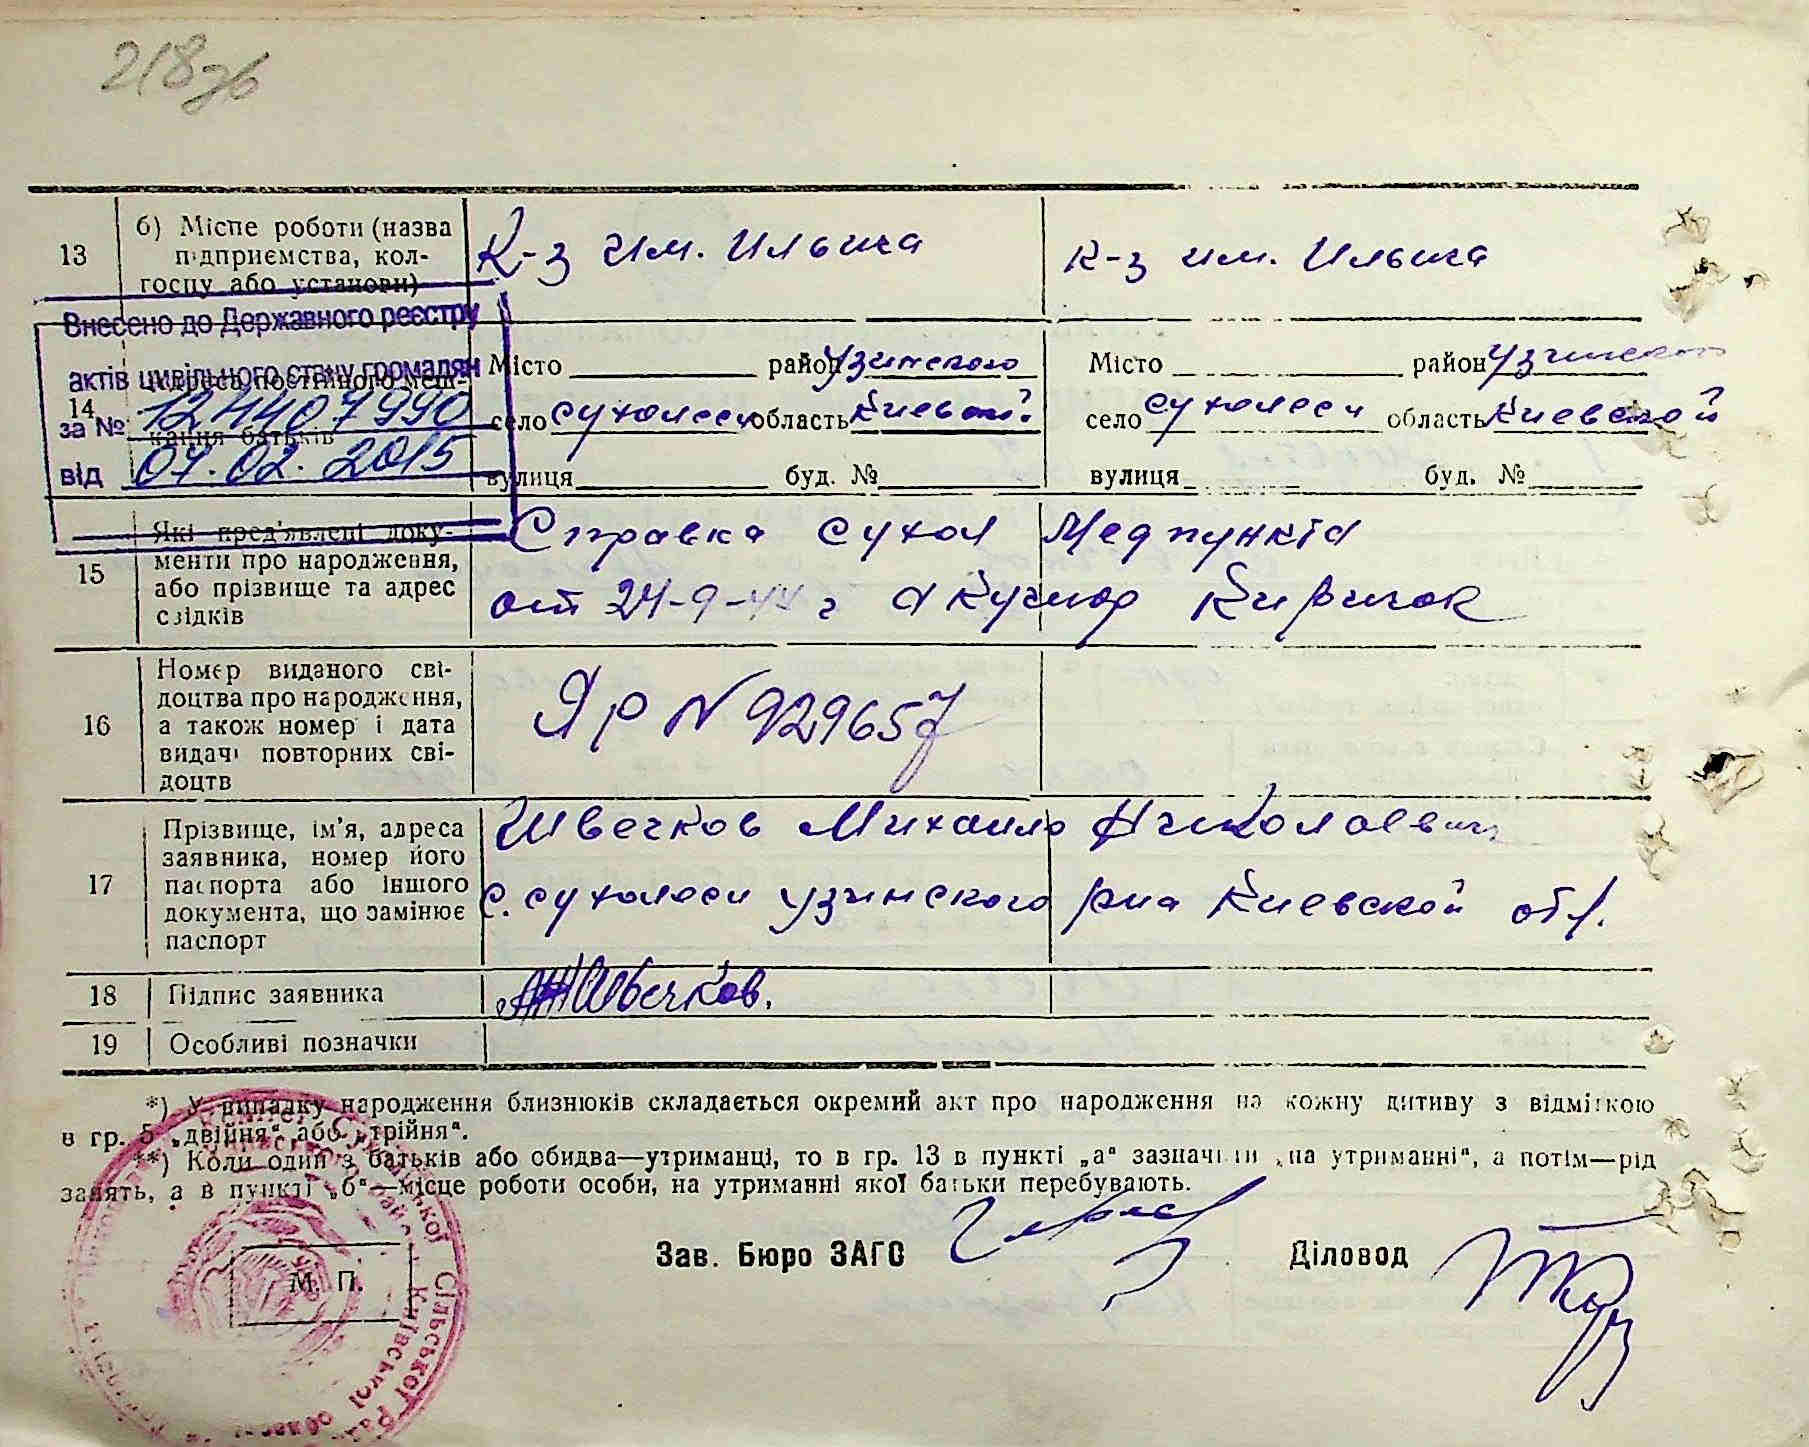 218
13 б) Місце роботи (назва підприємства, колгоспу або установи) К-з им. Ильича К-з им. Ильича
Внесено до Державного реєстру
актів цивільного стану громадян
за № 12440 7990
від 07.02.2015
14 Адреса постійного мешкання батьків
Місто район Узинского Місто район Узинского
село Сухолеси область Киевской село Сухолеси область Киевской
вулиця буд. № вулиця буд. №
15 Які пред'явлені документи про народження, або прізвище та адрес свідків
Справка Сухол Медпункта
от 24-9- г Акушор Киричок
16 Номер виданого свідоцтва про народження, а також номер і дата видачі повторних свідоцтв
ЯР N 929657
17 Прізвище, ім'я, адреса заявника, номер його паспорта або іншого документа, що замінює паспорт
Швечков Михаило Николаевич
с. Сухолеси Узинского р-на Киевской обл.
18 Підпис заявника Швечков.
19 Особливі позначки
*) У випадку народження близнюків складається окремий акт про народження на кожну дитину з відміткою
в гр. 5 „двійня“ або „трійня“.
**) Коли один з батьків або обидва—утриманці, то в гр. 13 в пункті „а“ зазначити „на утриманні“, а потім—рід
занять, а в пункті „б“—місце роботи особи, на утриманні якої батьки перебувають.
Зав. Бюро ЗАГС Діловод
М. П.
Сільської Ради
Київської області